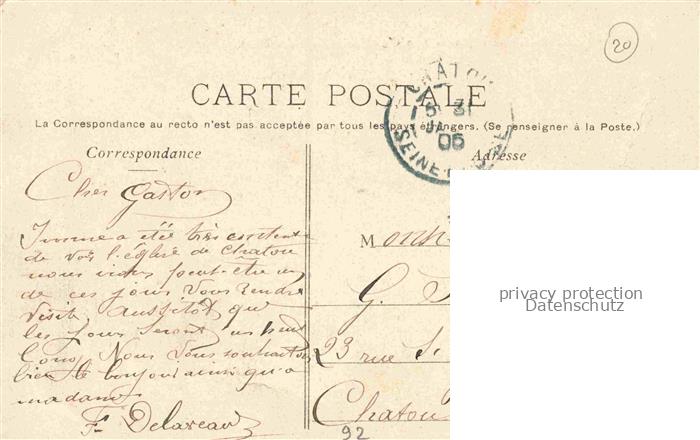 20
CHATOU
5 31
05
SEINE
CARTE POSTALE
La Correspondance au recto n'est pas acceptée par tous les pays étrangers. (Se renseigner à la Poste.)
Correspondance
Adresse
Cher Gaston
a été très contente
de voir l'église de Chatou
nous irons peut-être un
de ces jours vous rendre
visite aussitôt que
les jours seront un peu
long. Nous vous souhaitons
bien le bonjour ainsi qu'a
madame
F. Delareau
M
G.
23 rue S.
Chatou
92
privacy protection
Datenschutz